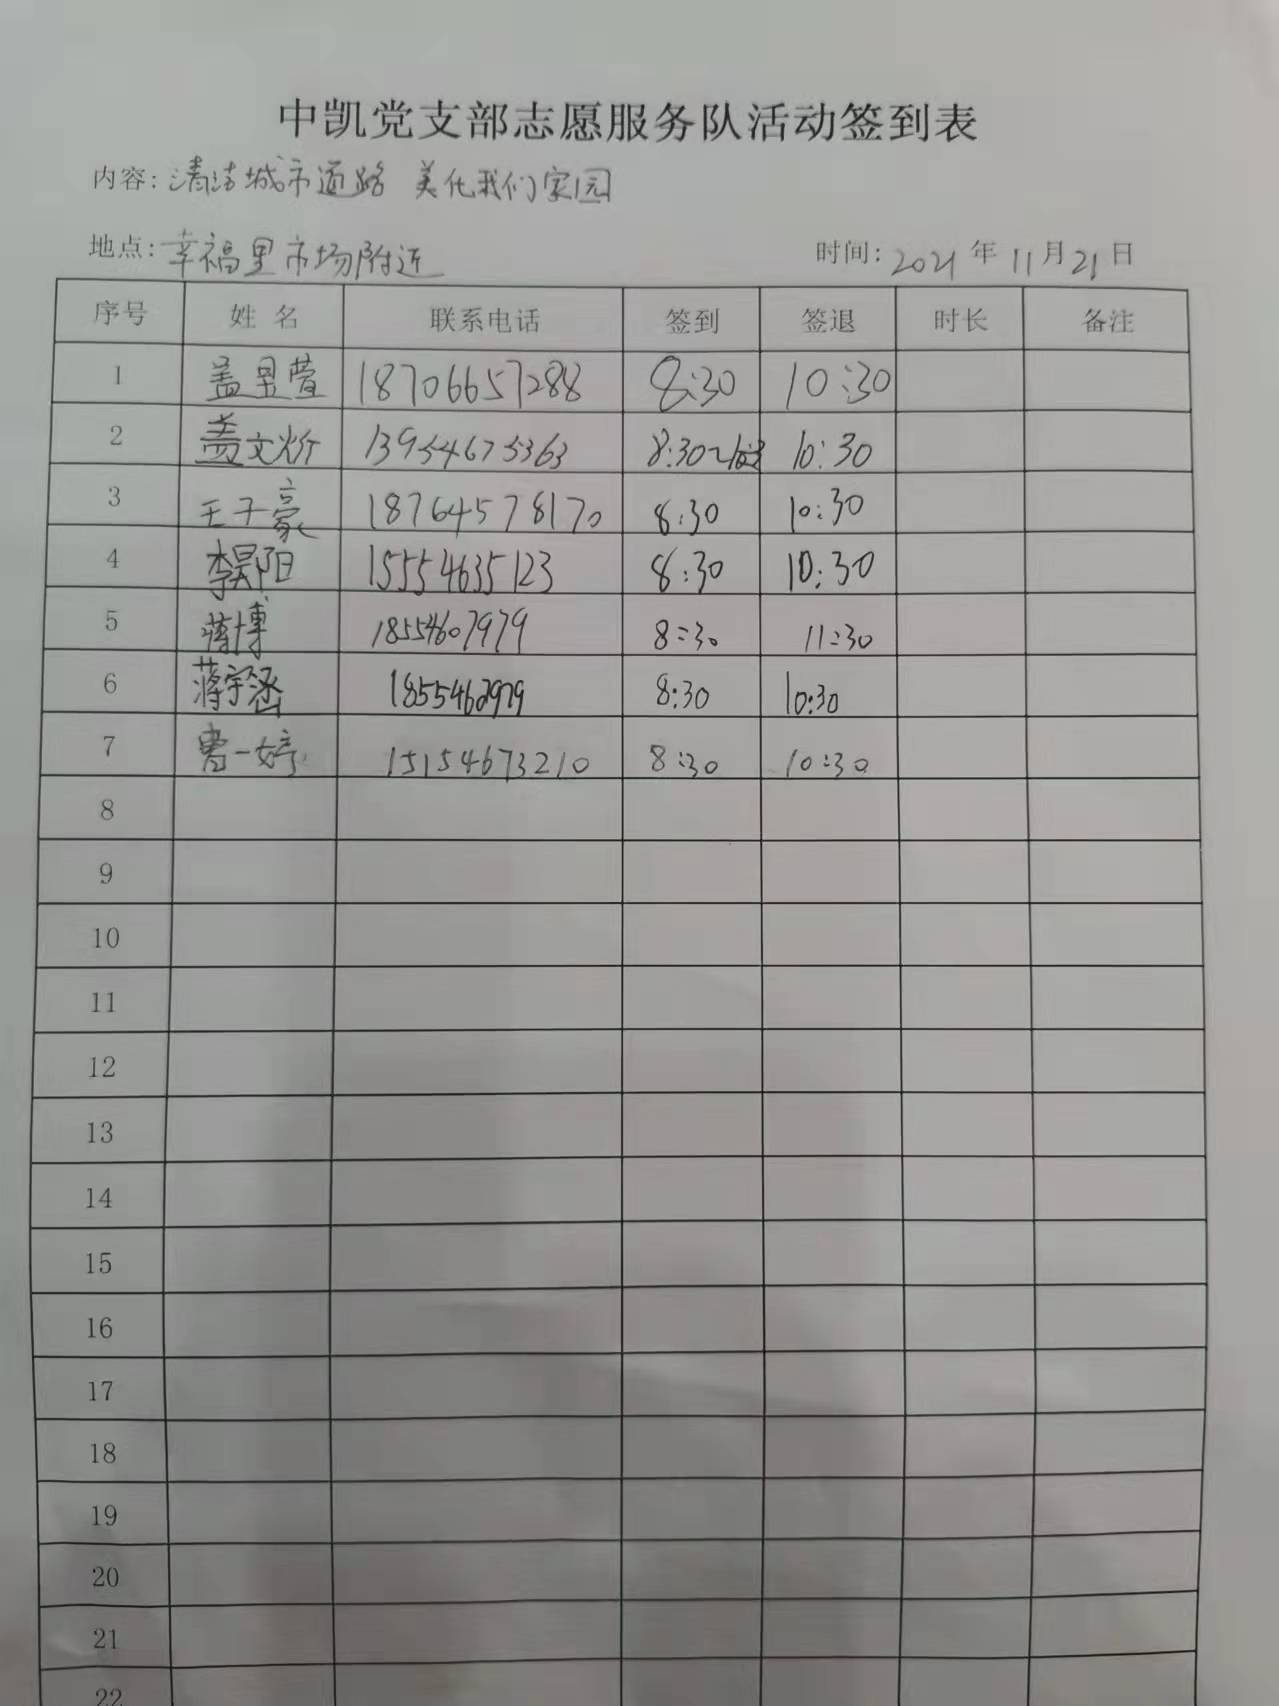 中凯党支部志愿服务队活动签到表
内容: 清洁城市道路 美化我们家园
地点: 幸福里市场附近 时间: 2021 年 11 月 21 日
序号 姓名 联系电话 签到 签退 时长 备注
1 盖昱萱 18706657288 8:30 10:30
2 盖文炘 13954675363 8:30 10:30
3 王子豪 18764578170 8:30 10:30
4 李昊阳 15554635123 8:30 10:30
5 蒋博 18554607979 8:30 11:30
6 蒋宇涵 8:30 10:30
7 曹一婷 15154673210 8:30 10:30
8
9
10
11
12
13
14
15
16
17
18
19
20
21
22